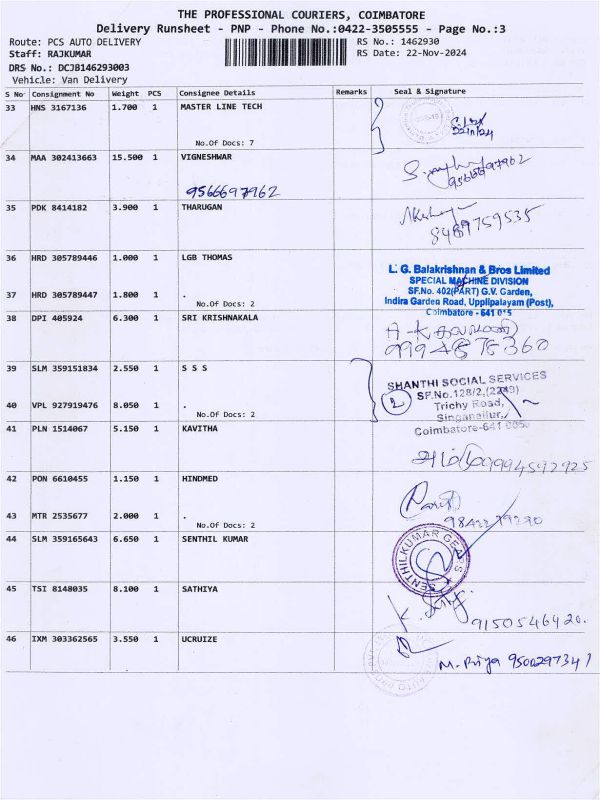 THE PROFESSIONAL COURIERS, COIMBATORE
Delivery Runsheet - PNP - Phone No.:0422-3505555 - Page No.:3
Route: PCS AUTO DELIVERY RS No.: 1462930
Staff: RAJKUMAR RS Date: 22-Nov-2024
DRS No.: DCJB146293003
Vehicle: Van Delivery
S No Consignment No Weight PCS Consignee Details Remarks Seal & Signature
33 HNS 3167136 1.700 1 MASTER LINE TECH
No.Of Docs: 7
34 MAA 302413663 15.500 1 VIGNESHWAR
9566697962
9566697962
35 PDK 8414182 3.900 1 THARUGAN
8489759535
36 HRD 305789446 1.000 1 LGB THOMAS
L. G. Balakrishnan & Bros Limited
SPECIAL MACHINE DIVISION
SF.No. 402(PART) G.V. Garden,
37 HRD 305789447 1.800 1 .
Indira Garden Road, Upplipalayam (Post),
No.Of Docs: 2
Coimbatore - 641 015
38 DPI 405924 6.300 1 SRI KRISHNAKALA
39 SLM 359151834 2.550 1 S S S
SHANTHI SOCIAL SERVICES
2
SF.No.128/2,
40 VPL 927919476 8.050 1 .
Trichy Road,
No.Of Docs: 2
Singanallur,
Coimbatore-641 005
41 PLN 1514067 5.150 1 KAVITHA
9994592925
42 PON 6610455 1.150 1 HINDMED
43 MTR 2535677 2.000 1 .
No.Of Docs: 2
44 SLM 359165643 6.650 1 SENTHIL KUMAR
SENTHILKUMAR GEARS
45 TSI 8148035 8.100 1 SATHIYA
9150546420.
46 IXM 303362565 3.550 1 UCRUIZE
M. Priya 9500297341